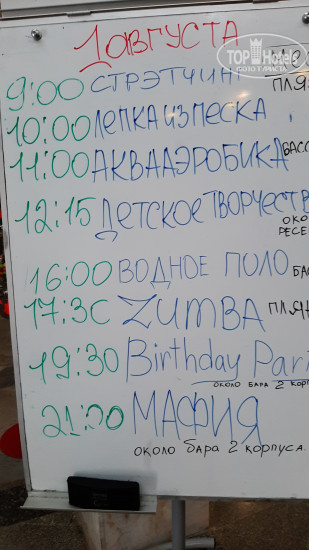 1 АВГУСТА
TOP Hotels
ФОТО ТУРИСТА
9:00 СТРЭТЧИНГ ПЛЯ
10:00 ЛЕПКА ИЗ ПЕСКА
11:00 АКВААЭРОБИКА БАСС
12:15 ДЕТСКОЕ ТВОРЧЕСТВ
ОКО
РЕСЕ
16:00 ВОДНОЕ ПОЛО БА
17:30 ZUMBA ПЛЯ
19:30 Birthday Part
около бара 2 корп
21:00 МАФИЯ
около бара 2 корпуса.